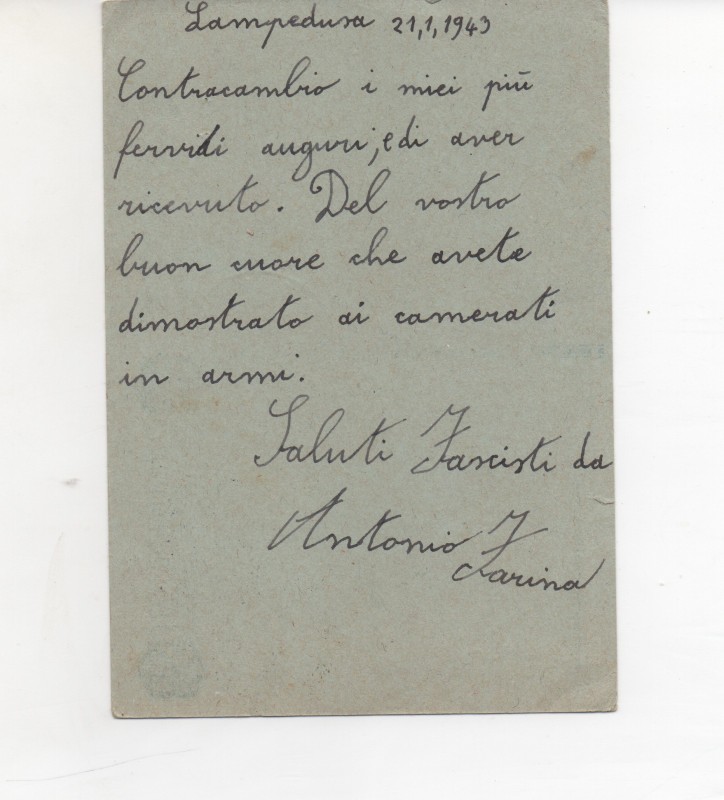 Lampedusa 21,1,1943
Contracambio i miei più
fervidi auguri, e di aver
ricevuto. Del vostro
buon cuore che avete
dimostrato ai camerati
in armi.
Saluti Fascisti da
Antonio
Farina